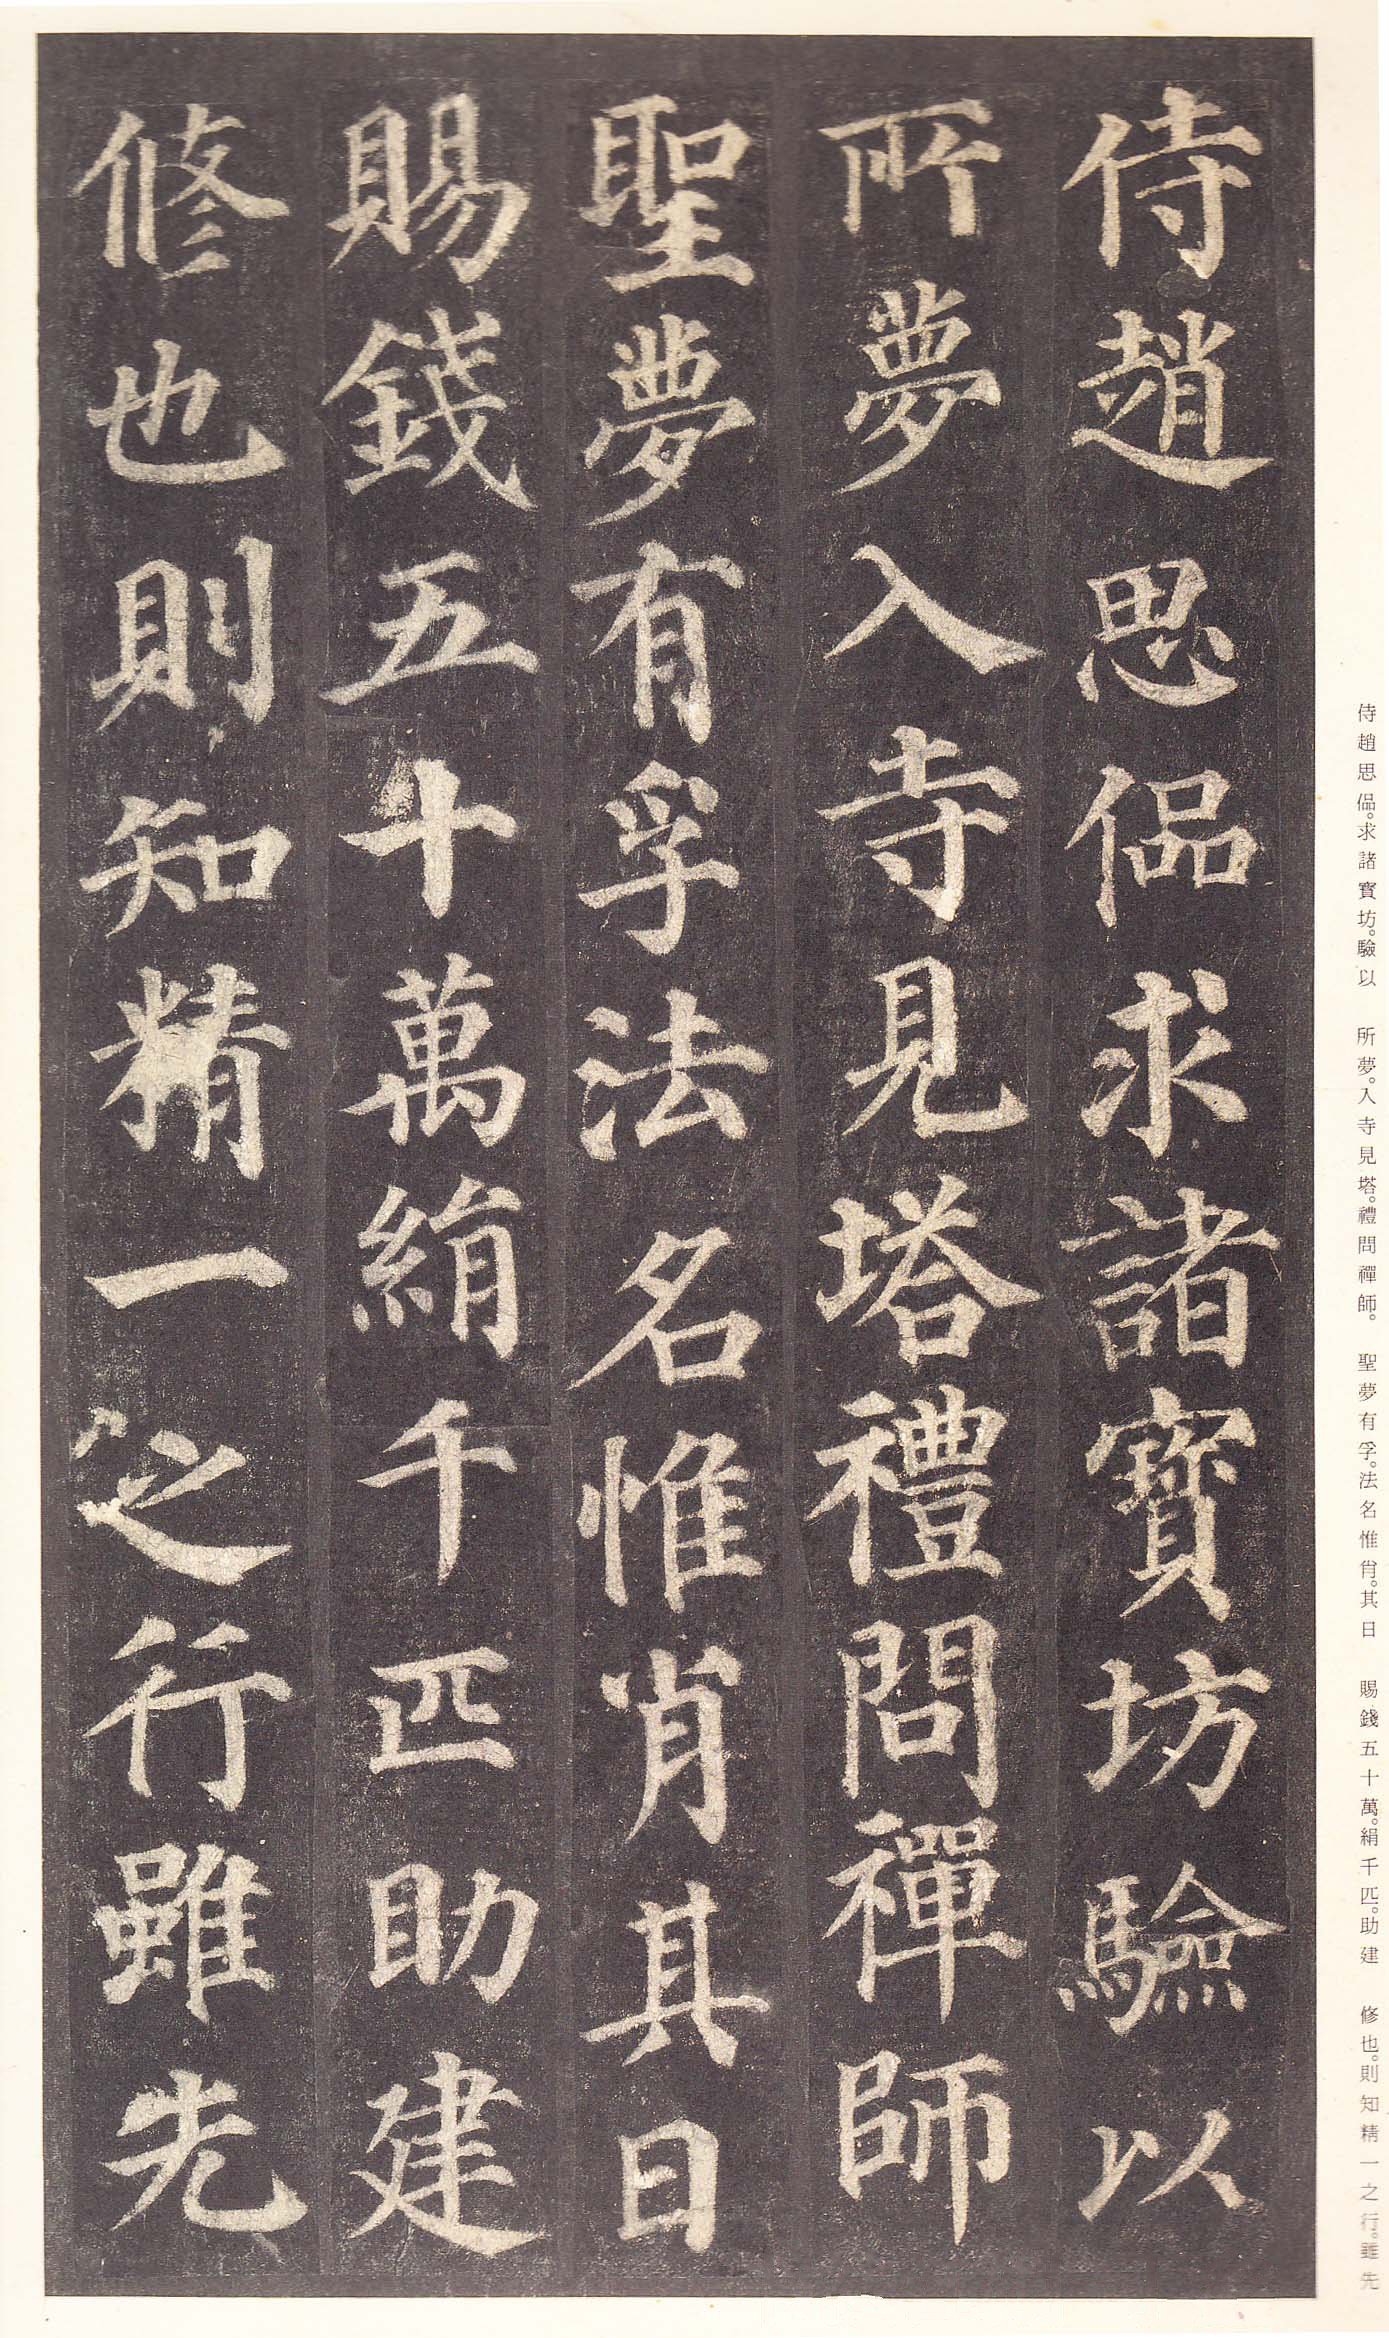 侍趙思偘求諸寶坊驗以
所夢入寺見塔禮問禪師
聖夢有孚法名惟肖其日
賜錢五十萬絹千匹助建
修也則知精一之行雖先
侍趙思偘。求諸寶坊。驗以　所夢。入寺見塔。禮問禪師。　聖夢有孚。法名惟肖。其日　賜錢五十萬。絹千匹。助建　修也。則知精一之行。雖先